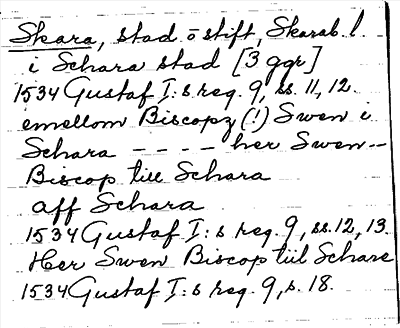 Skara, stad o stift, Skarab. l.
i Schara stad [3 ggr]
1534 Gustaf I:s reg. 9, ss. 11, 12.
emellom Biscopz (!) Swen i
Schara - - - - her Swen --
Biscop till Schara
aff Schara
1534 Gustaf I:s reg. 9, ss. 12, 13.
Her Swen Biscop till Schare
1534 Gustaf I:s reg. 9, s. 18.